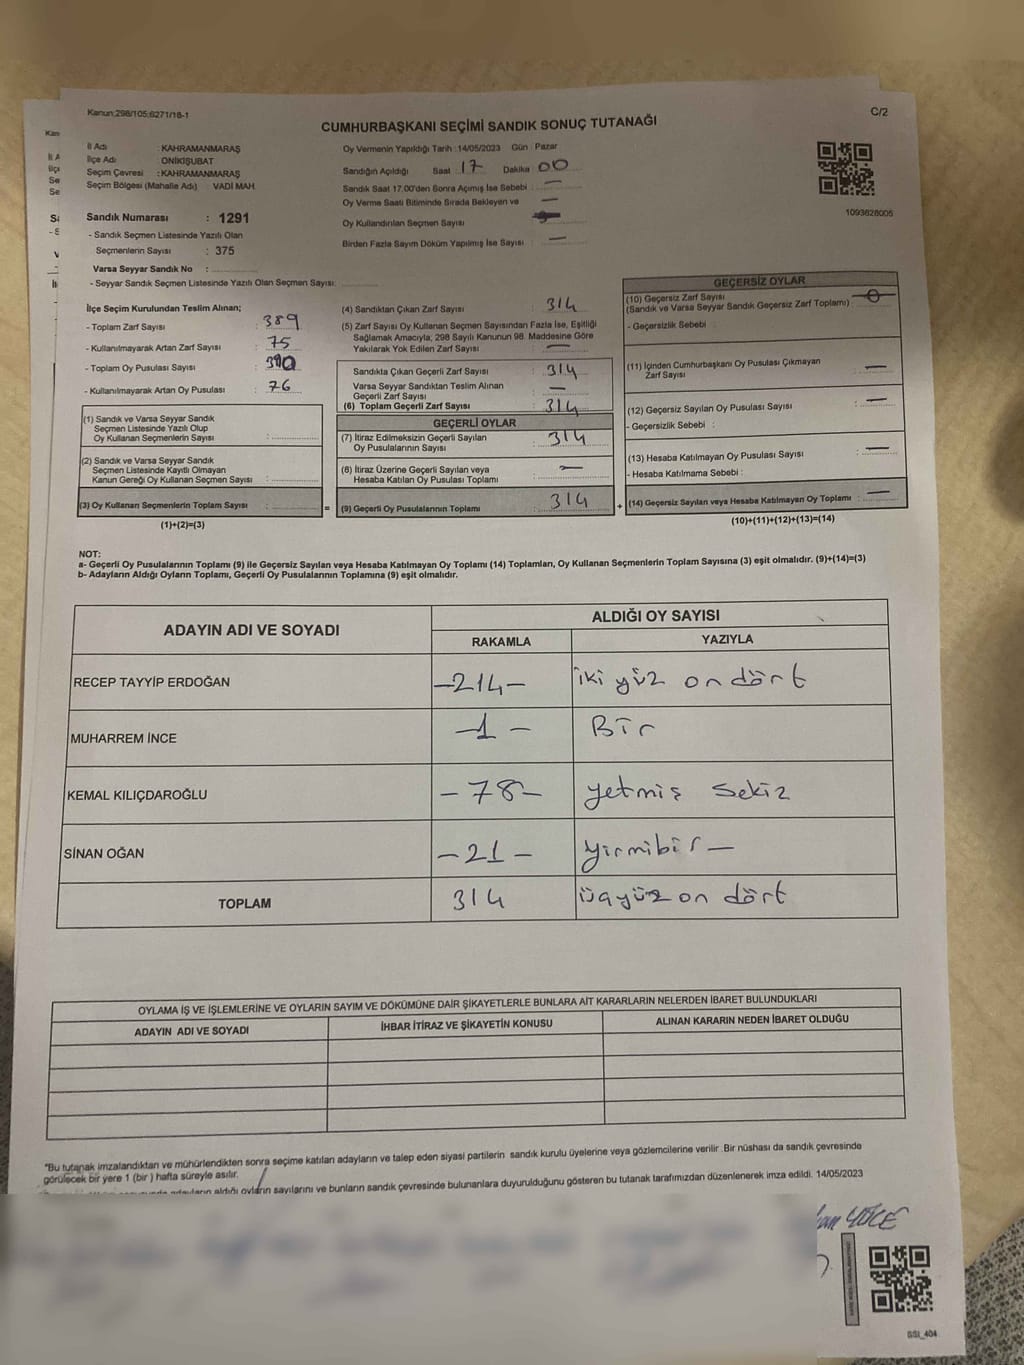 Kanun:298/105;6271/18-1
C/2
CUMHURBAŞKANI SEÇİMİ SANDIK SONUÇ TUTANAĞI
İl Adı : KAHRAMANMARAŞ
İlçe Adı : ONİKİŞUBAT
Seçim Çevresi : KAHRAMANMARAŞ
Seçim Bölgesi (Mahalle Adı) : VADİ MAH.
Sandık Numarası : 1291
- Sandık Seçmen Listesinde Yazılı Olan
Seçmenlerin Sayısı : 375
Varsa Seyyar Sandık No :
- Seyyar Sandık Seçmen Listesinde Yazılı Olan Seçmen Sayısı:
Oy Vermenin Yapıldığı Tarih :14/05/2023 Gün : Pazar
Sandığın Açıldığı Saat 17 Dakika 00
Sandık Saat 17.00'den Sonra Açımış İse Sebebi : —
Oy Verme Saati Bitiminde Sırada Bekleyen ve —
Oy Kullandırılan Seçmen Sayısı
Birden Fazla Sayım Döküm Yapılmış İse Sayısı : —
1093628005
İlçe Seçim Kurulundan Teslim Alınan;
- Toplam Zarf Sayısı : 389
- Kullanılmayarak Artan Zarf Sayısı : 75
- Toplam Oy Pusulası Sayısı : 390
- Kullanılmayarak Artan Oy Pusulası : 76
(1) Sandık ve Varsa Seyyar Sandık
Seçmen Listesinde Yazılı Olup
Oy Kullanan Seçmenlerin Sayısı :
(2) Sandık ve Varsa Seyyar Sandık
Seçmen Listesinde Kayıtlı Olmayan
Kanun Gereği Oy Kullanan Seçmen Sayısı :
(3) Oy Kullanan Seçmenlerin Toplam Sayısı :
(1)+(2)=(3)
=
(4) Sandıktan Çıkan Zarf Sayısı : 314
(5) Zarf Sayısı Oy Kullanan Seçmen Sayısından Fazla İse, Eşitliği
Sağlamak Amacıyla; 298 Sayılı Kanunun 98. Maddesine Göre
Yakılarak Yok Edilen Zarf Sayısı : —
Sandıkta Çıkan Geçerli Zarf Sayısı : 314
Varsa Seyyar Sandıktan Teslim Alınan
Geçerli Zarf Sayısı : —
(6) Toplam Geçerli Zarf Sayısı : 314
GEÇERLİ OYLAR
(7) İtiraz Edilmeksizin Geçerli Sayılan
Oy Pusulalarının Sayısı : 314
(8) İtiraz Üzerine Geçerli Sayılan veya
Hesaba Katılan Oy Pusulası Toplamı : —
(9) Geçerli Oy Pusulalarının Toplamı : 314
+
GEÇERSİZ OYLAR
(10) Geçersiz Zarf Sayısı
(Sandık ve Varsa Seyyar Sandık Geçersiz Zarf Toplamı) : -0-
- Geçersizlik Sebebi :
(11) İçinden Cumhurbaşkanı Oy Pusulası Çıkmayan
Zarf Sayısı : —
(12) Geçersiz Sayılan Oy Pusulası Sayısı : —
- Geçersizlik Sebebi :
(13) Hesaba Katılmayan Oy Pusulası Sayısı : —
- Hesaba Katılmama Sebebi :
(14) Geçersiz Sayılan veya Hesaba Katılmayan Oy Toplamı : —
(10)+(11)+(12)+(13)=(14)
NOT:
a- Geçerli Oy Pusulalarının Toplamı (9) ile Geçersiz Sayılan veya Hesaba Katılmayan Oy Toplamı (14) Toplamları, Oy Kullanan Seçmenlerin Toplam Sayısına (3) eşit olmalıdır. (9)+(14)=(3)
b- Adayların Aldığı Oyların Toplamı, Geçerli Oy Pusulalarının Toplamına (9) eşit olmalıdır.
ADAYIN ADI VE SOYADI ALDIĞI OY SAYISI
RAKAMLA YAZIYLA
RECEP TAYYİP ERDOĞAN -214- iki yüz on dört
MUHARREM İNCE -1- Bir
KEMAL KILIÇDAROĞLU -78- yetmiş sekiz
SİNAN OĞAN -21- yirmibir-
TOPLAM 314 üçyüz on dört
OYLAMA İŞ VE İŞLEMLERİNE VE OYLARIN SAYIM VE DÖKÜMÜNE DAİR ŞİKAYETLERLE BUNLARA AİT KARARLARIN NELERDEN İBARET BULUNDUKLARI
ADAYIN ADI VE SOYADI İHBAR İTİRAZ VE ŞİKAYETİN KONUSU ALINAN KARARIN NEDEN İBARET OLDUĞU
*Bu tutanak imzalandıktan ve mühürlendikten sonra seçime katılan adayların ve talep eden siyasi partilerin sandık kurulu üyelerine veya gözlemcilerine verilir. Bir nüshası da sandık çevresinde
görülecek bir yere 1 (bir) hafta süreyle asılır.
adayların aldığı oyların sayılarını ve bunların sandık çevresinde bulunanlara duyurulduğunu gösteren bu tutanak tarafımızdan düzenlenerek imza edildi. 14/05/2023
YÜCE
SSI_404